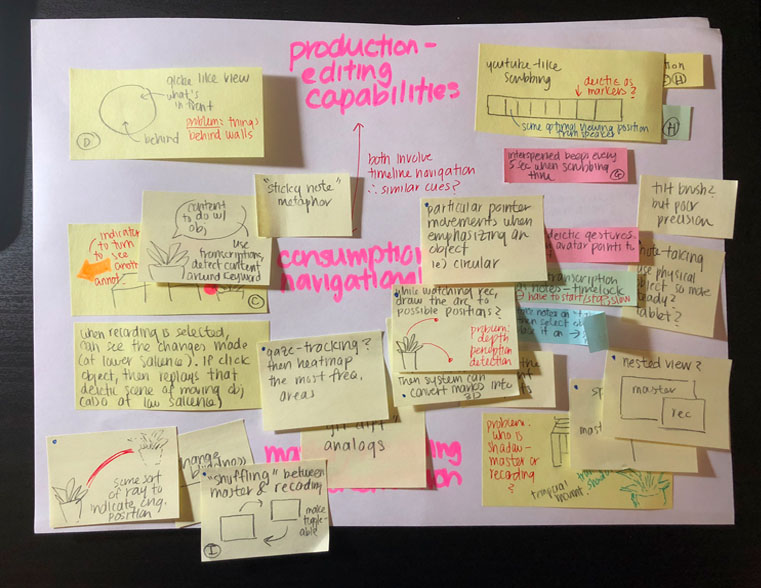 production-
editing
capabilities
globe like view
what's
in front
problem: things
behind walls
behind
D
youtube-like
scrubbing
deictic as
markers?
some optimal viewing position
from speaker
H
H
interspersed beeps every
5 sec when scrubbing
thru
G
both involve
timeline navigation
∴ similar cues?
"sticky note"
metaphor
tilt brush?
but poor
precision
content
to do w/
obj
use
transcriptions,
detect content
around keyword
indicator
to turn
to see
another
annot.
C
consumption
navigational
particular pointer
movements when
emphasizing an
object
ie) circular
deictic gestures-
avatar points to
note-taking
use physical
object so more
ready?
tablet?
transcription
notes-timelock
have to start/stop, slow
while watching rec,
draw the arc to
possible positions?
problem:
depth
perception
detection
then select obj
when recording is selected,
can see the changes made
(at lower salience). If click
object, then replays that
deictic scene of moving obj
(also at low salience)
gaze-tracking?
then heatmap
the most freq.
areas
the
then system can
convert marks into
3D
nested view?
master
rec
analogs
problem:
who is
shadow-
master or
recording
?
some sort
of ray to
indicate orig.
position
"shuffling" between
master & recording
make
toggle-
able
I